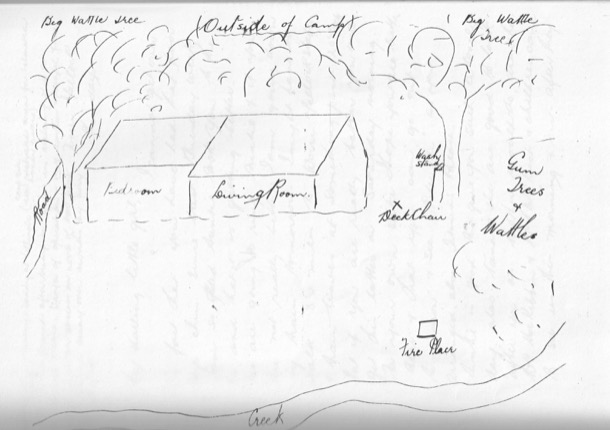 Big Wattle Tree
(Outside of Camp)
Big Wattle
Trees
Washy
stand
Gum
Trees
+
Wattles
Road
Bedroom
Living Room.
x
Deck Chair
Fire Place
Creek